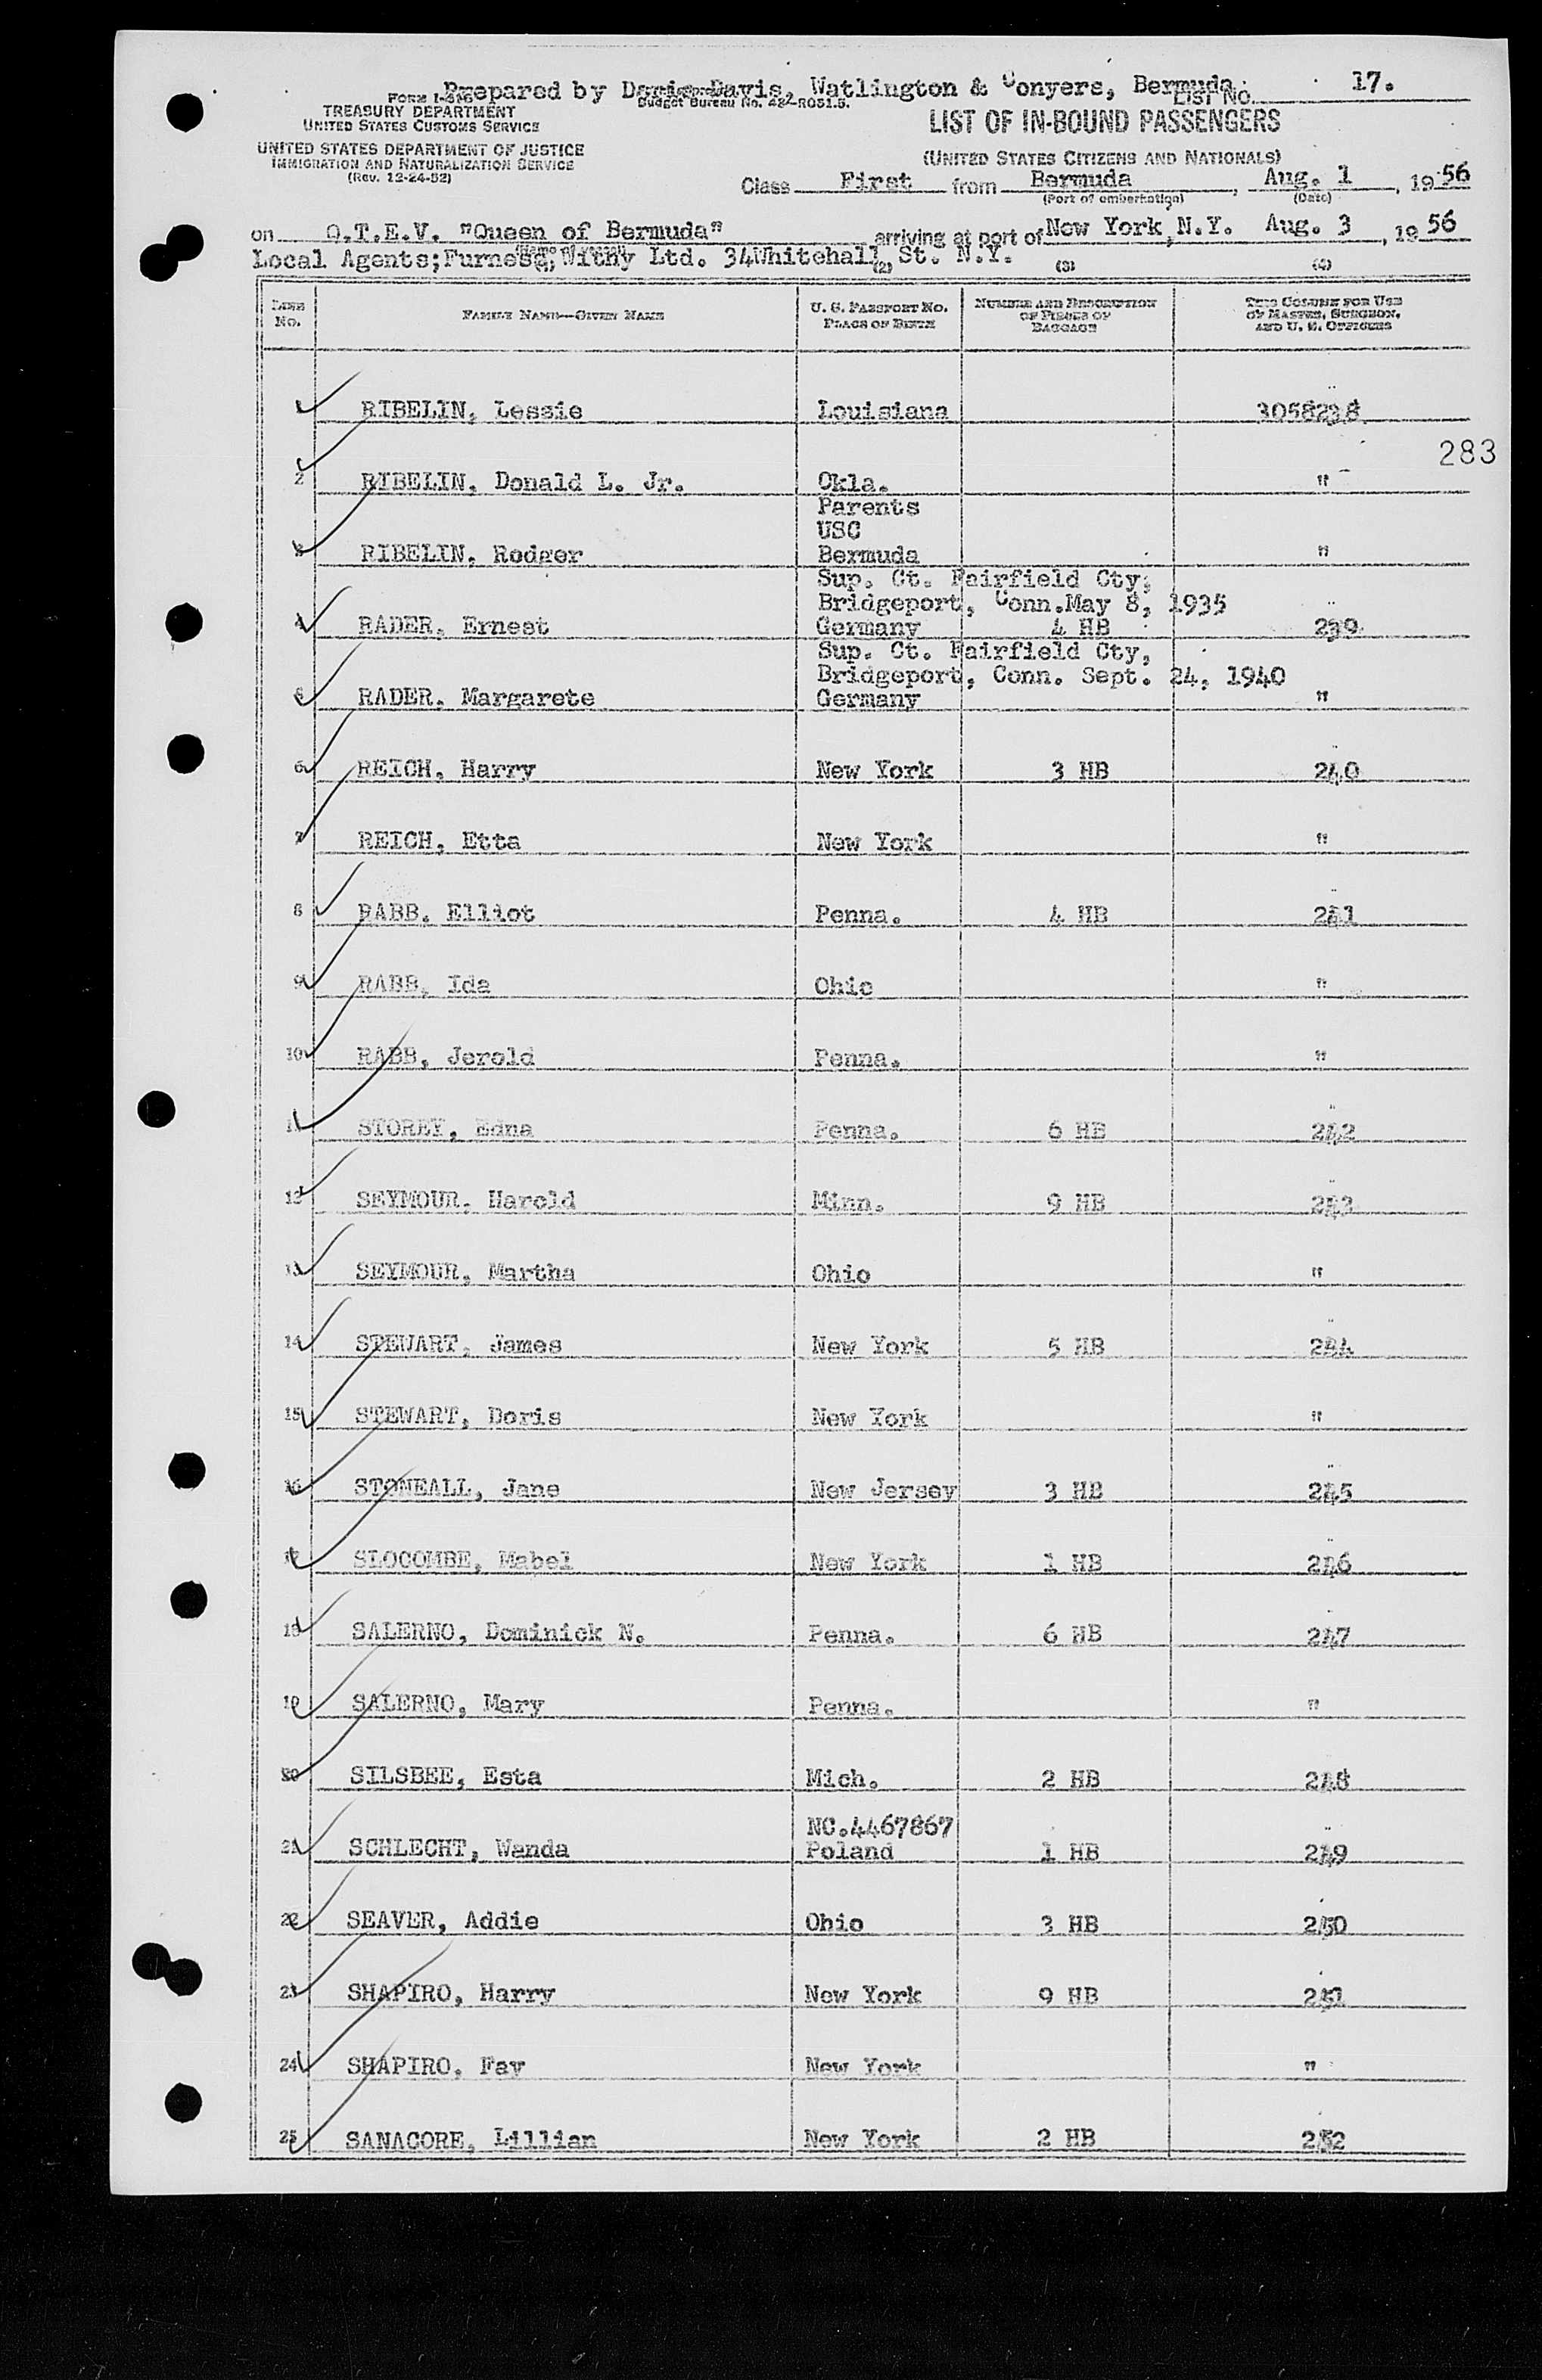 Prepared by Davis, Watlington & Conyers, Bermuda. LIST NO. 17.
FORM I-416
Budget Bureau No.
TREASURY DEPARTMENT
UNITED STATES CUSTOMS SERVICE
LIST OF IN-BOUND PASSENGERS
UNITED STATES DEPARTMENT OF JUSTICE
IMMIGRATION AND NATURALIZATION SERVICE
(Rev. 12-24-52)
(UNITED STATES CITIZENS AND NATIONALS)
Class First from Bermuda, Aug. 1, 1956
(Port of embarkation) (Date)
on Q.T.E.V. "Queen of Bermuda" arriving at port of New York, N.Y. Aug. 3, 1956
(Name of vessel)
Local Agents; Furness, Withy Ltd. 34Whitehall St. N.Y.
(2) (3) (4)
LINE NO. FAMILY NAME—GIVEN NAME U. S. PASSPORT NO. PLACE OF BIRTH NUMBER AND DESCRIPTION OF PIECES OF BAGGAGE THIS COLUMN FOR USE OF MASTER, SURGEON, AND U. S. OFFICERS
1 RIBELIN, Lessie Louisiana 3058238
283
2 RIBELIN, Donald L. Jr. Okla. "
Parents
USC
3 RIBELIN, Rodger Bermuda "
Sup. Ct. Fairfield Cty,
Bridgeport, Conn. May 8, 1935
4 RADER, Ernest Germany 4 HB 239
Sup. Ct. Fairfield Cty,
Bridgeport, Conn. Sept. 24, 1940
5 RADER, Margarete Germany "
6 REICH, Harry New York 3 HB 240
7 REICH, Etta New York "
8 RABB, Elliot Penna. 4 HB 241
9 RABB, Ida Ohio "
10 RABB, Jerold Penna. "
11 STOREY, Edna Penna. 6 HB 242
12 SEYMOUR, Harold Minn. 9 HB 243
13 SEYMOUR, Martha Ohio "
14 STEWART, James New York 5 HB 244
15 STEWART, Doris New York "
16 STONEALL, Jane New Jersey 3 HB 245
17 SLOCOMBE, Mabel New York 1 HB 246
18 SALERNO, Dominick N. Penna. 6 HB 247
19 SALERNO, Mary Penna. "
20 SILSBEE, Esta Mich. 2 HB 248
NC.4467867
21 SCHLECHT, Wanda Poland 1 HB 249
22 SEAVER, Addie Ohio 3 HB 250
23 SHAPIRO, Harry New York 9 HB 251
24 SHAPIRO, Fay New York "
25 SANACORE, Lillian New York 2 HB 252